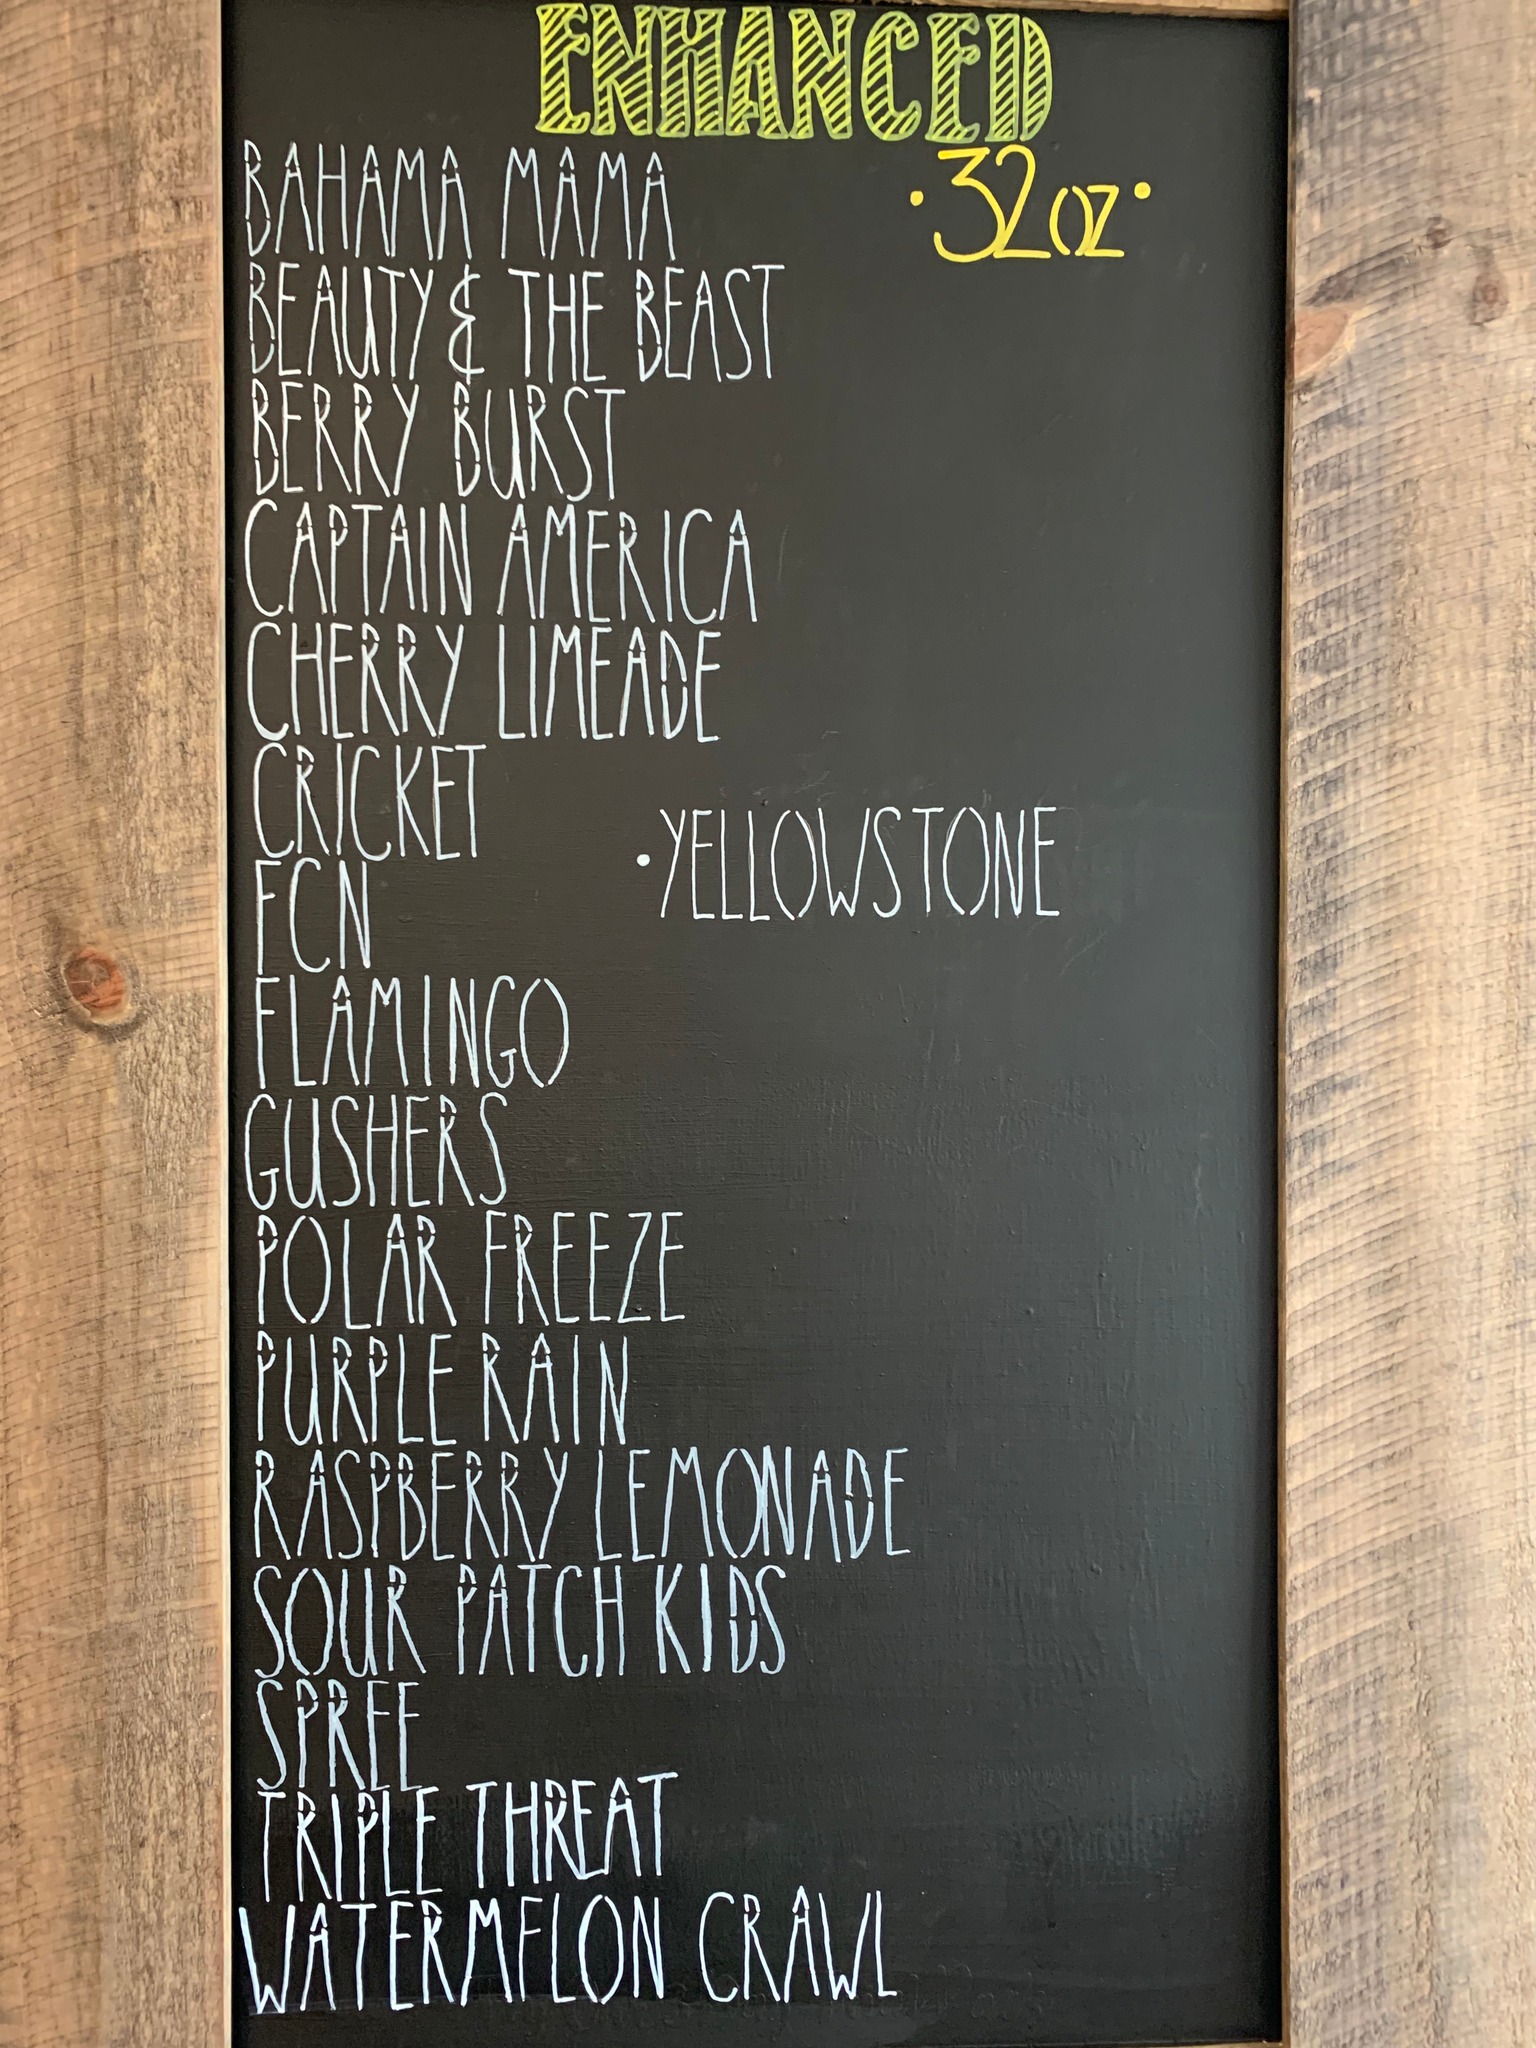 ENHANCED
·32oz·
BAHAMA MAMA
BEAUTY & THE BEAST
BERRY BURST
CAPTAIN AMERICA
CHERRY LIMEADE
CRICKET
·YELLOWSTONE
FCN
FLAMINGO
GUSHERS
POLAR FREEZE
PURPLE RAIN
RASPBERRY LEMONADE
SOUR PATCH KIDS
SPREE
TRIPLE THREAT
WATERMELON CRAWL